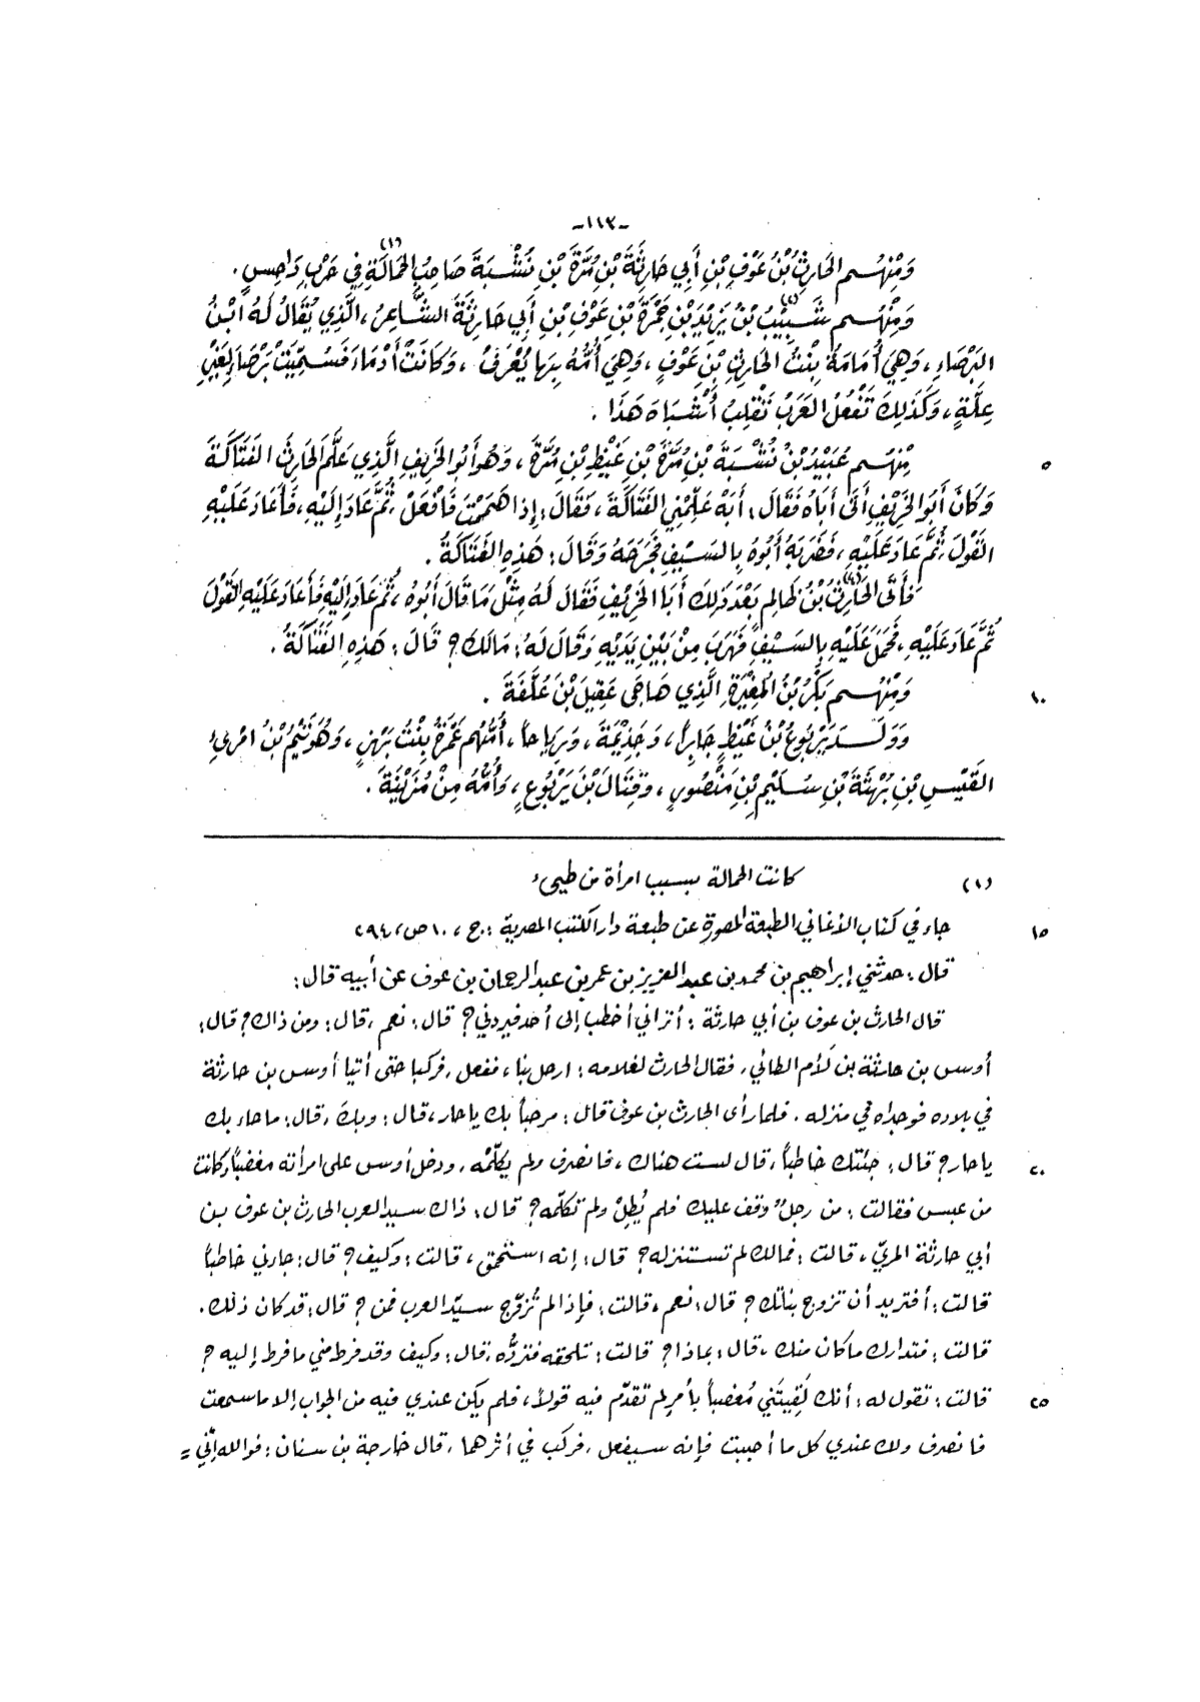 -١١٣-
وَمِنْهُم الحَارِثُ بْنُ عَوْفِ بْنِ أَبِي حَارِثَةَ بْنِ مُرَّةَ بْنِ نُشْبَةَ صَاحِبُ الحَمَالَةِ (١) فِي حَرْبِ دَاحِسٍ.
وَمِنْهُم شَبِيْبُ (٢) بْنُ يَزِيْدَ بْنِ جَمْرَةَ بْنِ عَوْفِ بْنِ أَبِي حَارِثَةَ الشَّاعِرُ، الَّذِي يُقَالُ لَهُ ابْنُ
البَرْصَاءِ، وَهِيَ أُمَامَةُ بِنْتُ الحَارِثِ بْنِ عَوْفٍ، وَهِيَ أُمُّهُ بِهَا يُعْرَفُ، وَكَانَتْ أَدْمَاءَ فَسُمِّيَتْ بَرْصَاءَ لِغَيْرِ
عِلَّةٍ، وَكَذَلِكَ تَفْعَلُ العَرَبُ تَقْلِبُ أَشْبَاهَ هَذَا.
٥ مِنْهُم عُبَيْدُ بْنُ نُشْبَةَ بْنِ مُرَّةَ بْنِ غَيْظِ بْنِ مُرَّةَ، وَهُوَ أَبُو الخَرِيْفِ الَّذِي عَلَّمَ الحَارِثَ الفَتَاكَةَ
وَكَانَ أَبُو الخَرِيْفِ أَتَى أَبَاهُ فَقَالَ: أَبَهْ عَلِّمْنِي الفَتَاكَةَ، فَقَالَ: إِذَا هَمَمْتَ فَافْعَلْ، ثُمَّ عَادَ إِلَيْهِ، فَأَعَادَ عَلَيْهِ
القَوْلَ، ثُمَّ عَادَ عَلَيْهِ، فَضَرَبَهُ أَبُوهُ بِالسَيْفِ فَجَرَحَهُ وَقَالَ: هَذِهِ الفَتَاكَةُ.
فَأَتَى الحَارِثُ (٣) بْنُ ظَالِمٍ بَعْدَ ذَلِكَ أَبَا الخَرِيْفِ فَقَالَ لَهُ مِثْلَ مَا قَالَ أَبُوهُ، ثُمَّ عَادَ إِلَيْهِ فَأَعَادَ عَلَيْهِ القَوْلَ
ثُمَّ عَادَ عَلَيْهِ، فَحَمَلَ عَلَيْهِ بِالسَيْفِ فَهَرَبَ مِنْ بَيْنِ يَدَيْهِ وَقَالَ لَهُ: مَالَكَ؟ قَالَ: هَذِهِ الفَتَاكَةُ.
١٠ وَمِنْهُم بَكْرُ بْنُ المُغِيْرَةِ الَّذِي هَاجَى عَقِيلَ بْنَ عُلَّفَةَ.
وَوَلَدَ يَرْبُوعُ بْنُ غَيْظٍ جَابِراً، وَجَذِيْمَةَ، وَرِيَاحاً، أُمُّهُم عَمْرَةُ بِنْتُ بَهْزٍ، وَهُوَ تَيْمُ بْنُ امْرِئِ
القَيْسِ بْنِ بُهْثَةَ بْنِ سُلَيْمِ بْنِ مَنْصُورٍ، وَقِتَالَ بْنَ يَرْبُوعٍ، وَأُمُّهُ مِنْ مُزَيْنَةَ.
(١) كانت الحمالة بسبب امرأة من طيىء
١٥ جاء في كتاب الأغاني الطبعة المصورة عن طبعة دار الكتب المصرية: ج، ١٠ ص، ٢٩٤
قال: حدثني إبراهيم بن محمد بن عبد العزيز بن عمر بن عبد الرحمان بن عوف عن أبيه قال:
قال الحارث بن عوف بن أبي حارثة: أتراني أخطب إلى أحد فيردني؟ قال: نعم، قال: ومن ذاك؟ قال:
أوس بن حارثة بن لأم الطائي، فقال الحارث لغلامه: ارحل بنا، ففعل، فركبا حتى أتيا أوس بن حارثة
في بلاده فوجداه في منزله، فلما رأى الحارث بن عوف قال: مرحباً بك ياحار، قال: وبك، قال: ماجاء بك
٢٠ ياحار؟ قال: جئتك خاطباً، قال لست هناك، فانصرف ولم يكلّمه، ودخل أوس على امرأته مغضباً وكانت
من عبس فقالت: من رجلٌ وقف عليك فلم يُطِلْ ولم تكلّمه؟ قال: ذاك سيد العرب الحارث بن عوف بن
أبي حارثة المريّ، قالت: فمالك لم تستنزله؟ قال: إنه استحمق، قالت: وكيف؟ قال: جاءني خاطباً
قالت: أفتريد أن تزوج بناتك؟ قال: نعم، قالت: فإذا لم تُزوّج سيّد العرب فمن؟ قال: قد كان ذلك.
قالت: فتدارك ماكان منك، قال: بماذا؟ قالت: تلحقه فتردُّه، قال: وكيف وقد فرط مني ما فرط إليه؟
٢٥ قالت: تقول له: أنك لَقِيتَني مُغضباً بأمرٍ لم تقدّم فيه قولاً، فلم يكن عندي فيه من الجواب إلا ماسمعت
فانصرف ولك عندي كل ما أحببت فإنه سيفعل، فركب في أثرهما، قال خارجة بن سنان: فوالله إنّي =